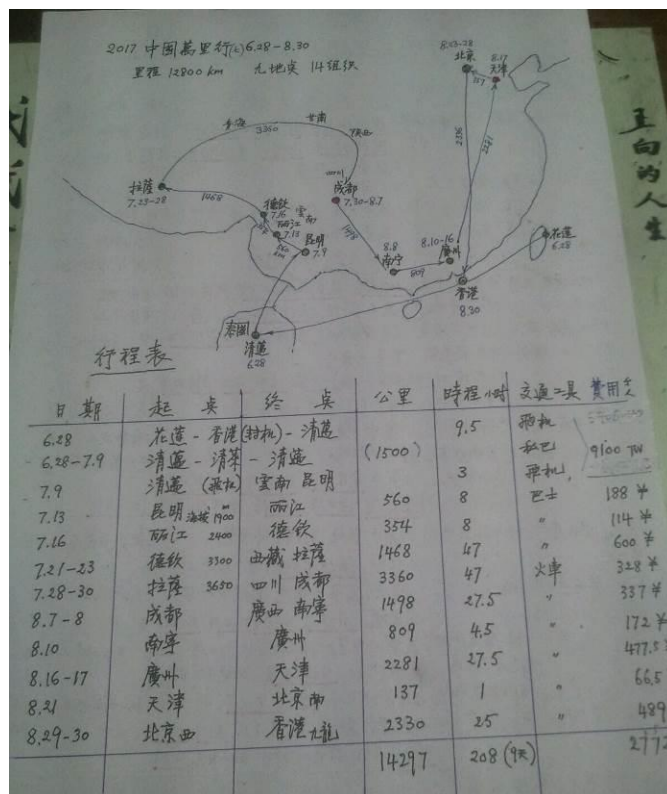 2017 中国萬里行 6.28-8.30
里程 12800 km 九地点 14组织
8.23-28
北京
8.17
天津
137
2336
2281
青海
3360
甘肃
陕西
拉薩
7.23-28
1468
德钦
7.16
雲南
丽江
7.13
昆明
7.9
成都
7.30-8.7
1498
8.8
南宁
809
8.10-16
廣州
香港
8.30
花蓮
6.28
泰國
清邁
6.28
王向的人生
行程表
日期 起点 終点 公里 時程小时 交通工具 費用
6.28 花蓮-香港(转机)-清邁 9.5 飛机
6.28-7.9 清邁-清莱-清邁 (1500) 私巴 9100 TW
7.9 清邁 (飛机) 雲南 昆明 3 飛机
7.13 昆明 海拔 1900 m 丽江 560 8 巴士 188 ¥
7.16 丽江 2400 德钦 354 8 〃 114 ¥
7.21-23 德钦 3300 西藏 拉薩 1468 47 〃 600 ¥
7.28-30 拉薩 3650 四川 成都 3360 47 火車 328 ¥
8.7-8 成都 廣西 南寧 1498 27.5 〃 337 ¥
8.10 南寧 廣州 809 4.5 〃 172 ¥
8.16-17 廣州 天津 2281 27.5 〃 477.5
8.21 天津 北京南 137 1 〃 66.5
8.29-30 北京西 香港九龍 2330 25 〃 489
14297 208 (9天) 2772